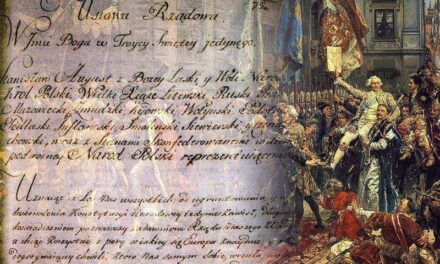 Ustawa Rządowa
W Imie Boga w Troycy Swiętey jedynego.
Stanisław August z Bożey Łaski y Woli Narodu
Krol Polski, Wielki Xiąże Litewski, Ruski
Mazowiecki, Zmudzki, Kijowski, Wołynski, Podolski
Podlaski, Inflantski, Smolenski, Siewierski, y
chowski, wraz z Stanami Skonfederowanemi w liczbie
podwoyney Narod Polski reprezentuiącemi
Uznaiąc, iż Los Nas wszystkich od ugruntowania y
Konstytucyi Narodowey iedynie zawisł, długim
doswiadczeniem poznawszy zadawnione Rządu Naszego Wady
a chcąc korzystać z pory, w iakiey się Europa znayduie, y
dogorywaiącey chwili, ktora Nas samym sobie wrociła